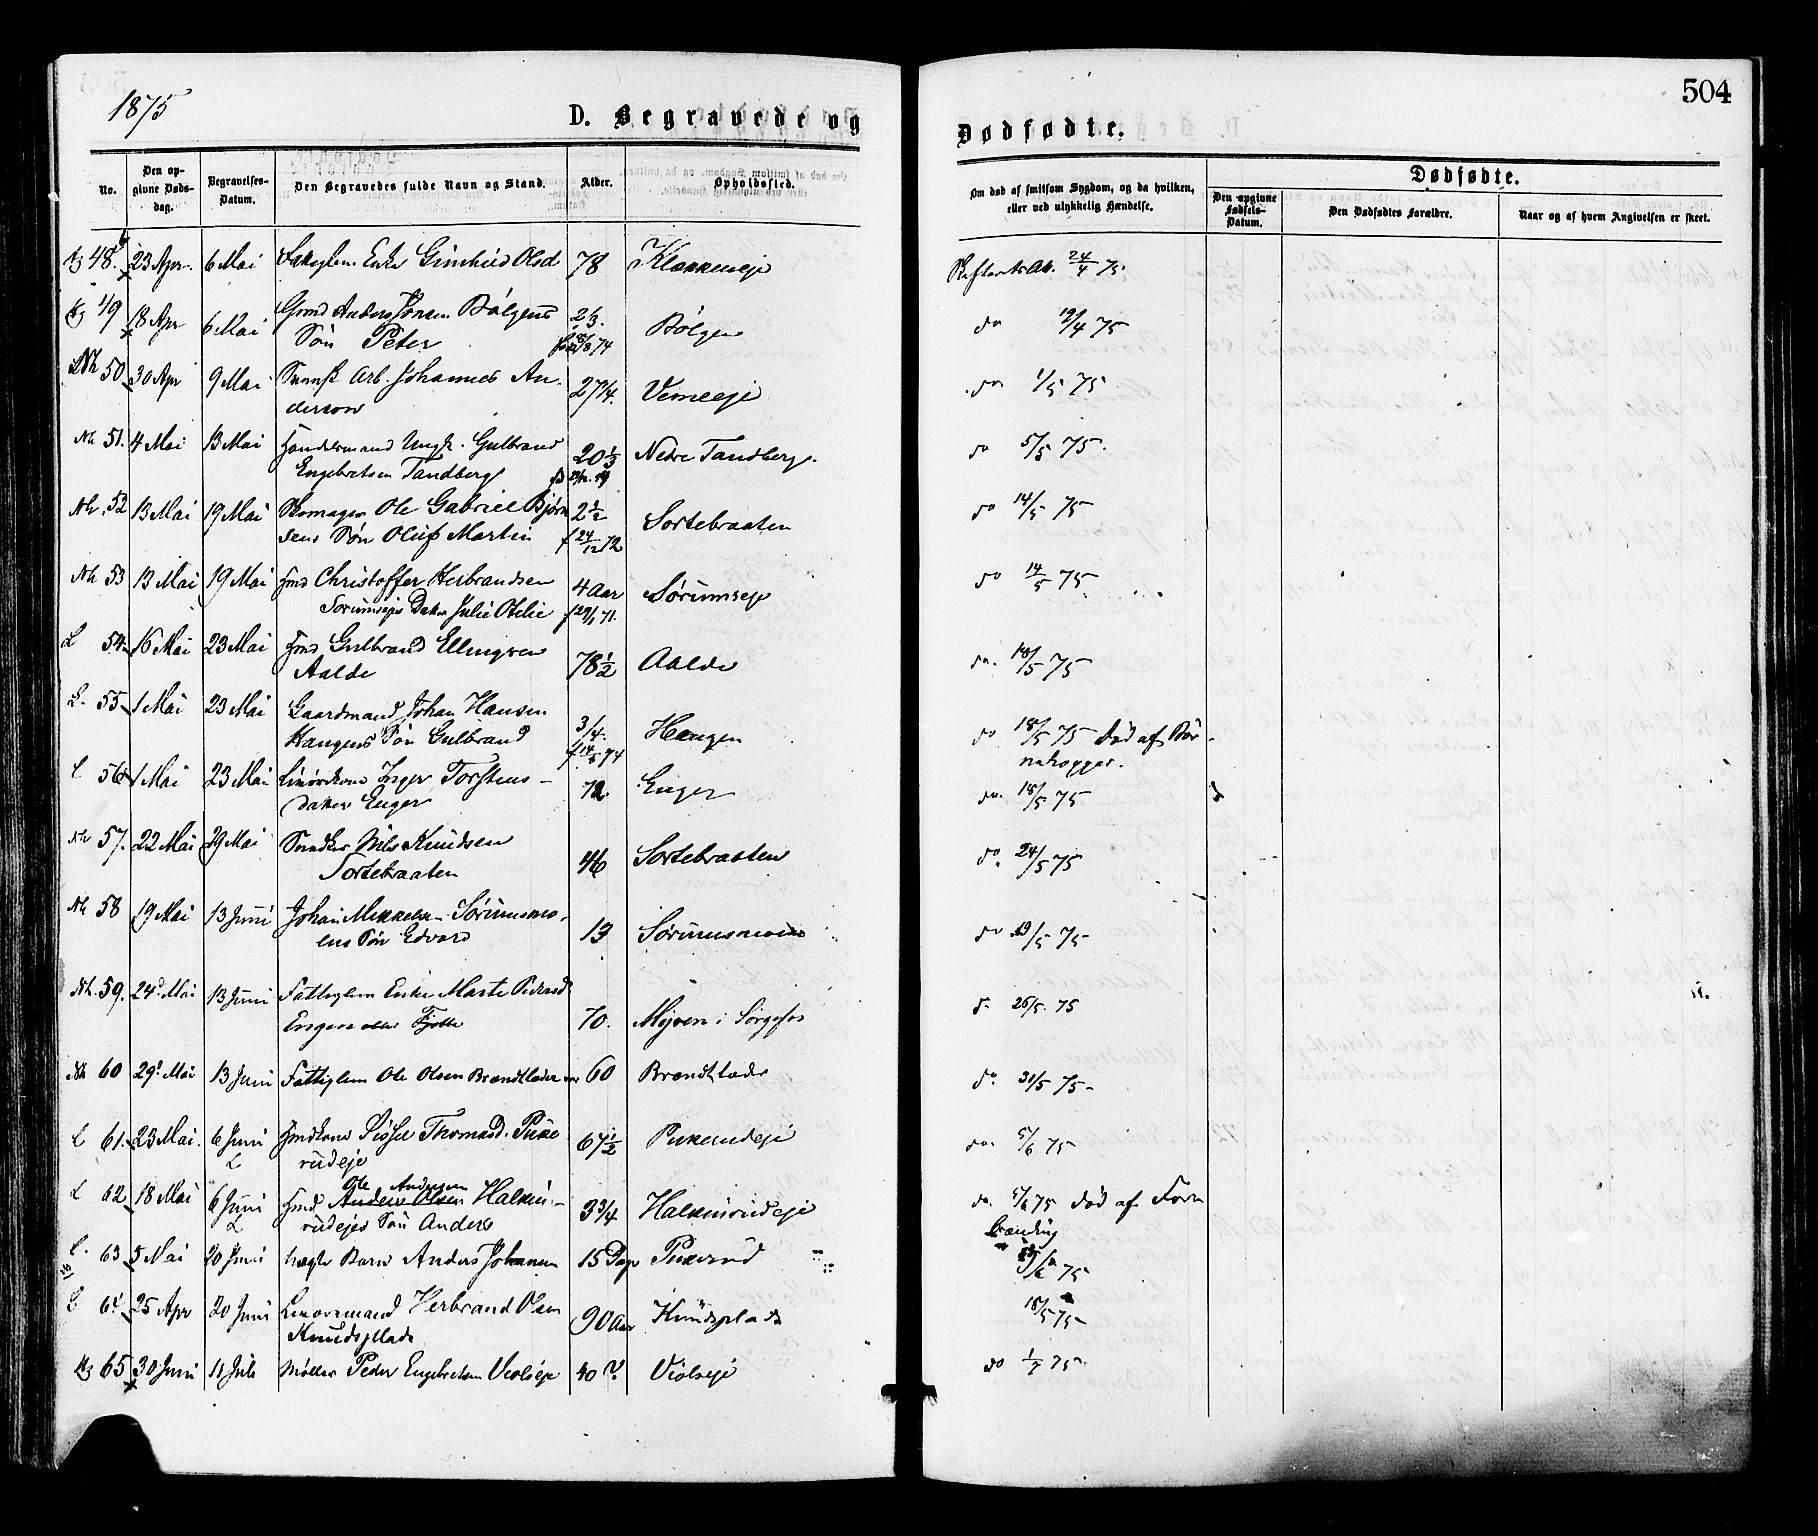 504
1875
D. Begravede og Dødfødte.
No.
Den opgivne Dødsdag.
Begravelses-Datum.
Den Begravedes fulde Navn og Stand.
Alder.
Opholdssted.
Om død af smitsom Sygdom, og da hvilken, eller ved ulykkelig Hændelse.
Dødfødte.
Den opgivne Fødsels-Datum.
Den Dødfødtes Forældre.
Naar og af hvem Angivelsen er skeet.
48. 23 Apr. 6 Mai Enke Gunhild Olsd 78 Klækkeneje Skifteatt. 24/4 75.
49 18 Apr 6 Mai Gmd Anders Jonsen Bølgens 2/3. Bølgen do 19/4 75
Søn Peter
Nh 50 30 Apr 9 Mai Svensk Arb. Johannes An- 27 1/4. Vemeeje do 1/5 75.
derson
Nh 51. 4 Mai 13 Mai Handelsmand Ungk. Gulbrand 20 1/3 Nedre Tandberg. do 5/5 75.
Engebretsen Tandberg
Nh. 52 13 Mai 19 Mai Skomager Ole Gabriel Bjørn 2 1/2 Sortebraaten do 14/5 75
sens Søn Oluf Martin f 24/12 72
Nh 53 13 Mai 19 Mai Hmd Christoffer Herbrandsen 4 Aar Sørumseje do 14/5 75
Sørumsejes Datter Julie Otelie f 29/1 71.
L 54 16 Mai 23 Mai Hmd Gulbrand Ellingsen 78 1/2 Aalde do. 18/5 75
Aalde
L. 55 1 Mai 23 Mai Gaardmand Johan Hansen 3/4. Haugen do 18/5 75 Død af Bør-
Haugens Søn Gulbrand f 14/5 74 nekopper.
L 56 1 Mai 23 Mai Inger Torstens- 72. Enger do. 18/5 75
datter Enger
Nh 57. 22 Mai 29 Mai Snedker Nils Knudsen 46 Sortebraaten do. 24/5 75
Sortebraaten
Nh 58 19 Mai 13 Juni Johan Mikkelsen Sørumsmo- 13 Sørumsmoen do /5 75
ens Søn Edvard
Nh. 59. 24d Mai 13 Juni Fattiglem Enke Marte Pedersd 70. Mÿren i 26/5. 75
Engen eller Fjelle
Nh 60 29d Mai 13 Juni Fattiglem Ole Olsen 60 do. 31/5 75
L 61. 23 Mai. 6 Juni Hmdkone Sissel Thomasd. Puke 67 1/2 Pukerudeje do. 5/6 75
L rudeje
Ole Andersen
L 62 18 Mai 6 Juni Hmd Anders Olsen Halkin- 3 3/4 Halkinrudeje do. 5/6 75 død af For-
L rudejes Søn Anders brænding
L. 63 5 Mai 20 Juni uægte Barn Anders Johannesen 15 Dage Pukerud /6 75
L 64 25 Apr 20 Juni Herbrand Olsen 90 Aar Knudsplads 18/5 75
Knudsplads
65 30 Juni 11 Juli Møller Peder Engebretsen Violseje 40 ? Violseje do 1/7 75.